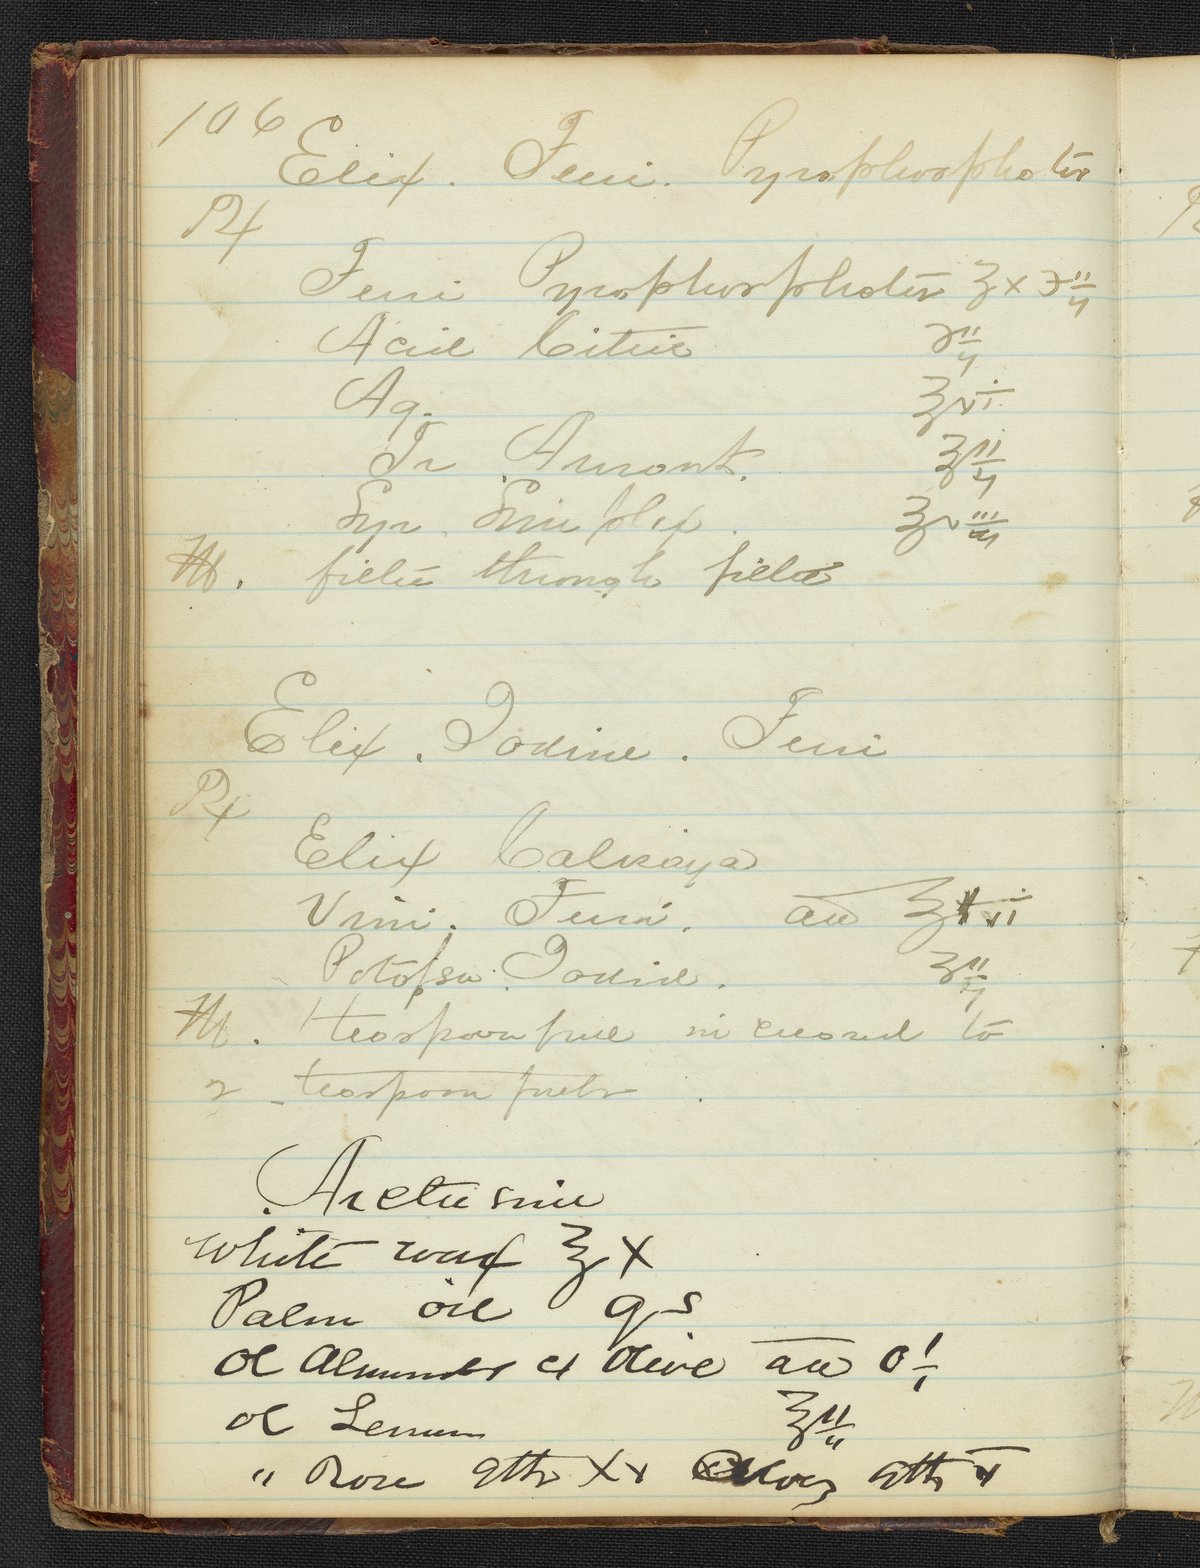 106
Elix. Ferri. Pyrophosphates
Rx
Ferri Pyrophosphates ℥x ʒii
Acid Citric ʒii
Aq. ℥vi
Tr Aurant. ℥ii
Syr. Simplex. ℥viii
M. filter through filter
Elix. Iodine. Ferri
Rx
Elix Calisaya
Vini. Ferri. aa ℥vi
Potassa. Iodid. ʒii
M. 1 teaspoonfull increased to
2 teaspoonfuls.
White wax ℥X
Palm oil qs
Ol Almonds et Olive aa O i
Ol Lemon ℥ii
" Rose gtts XV Cloves gtts V